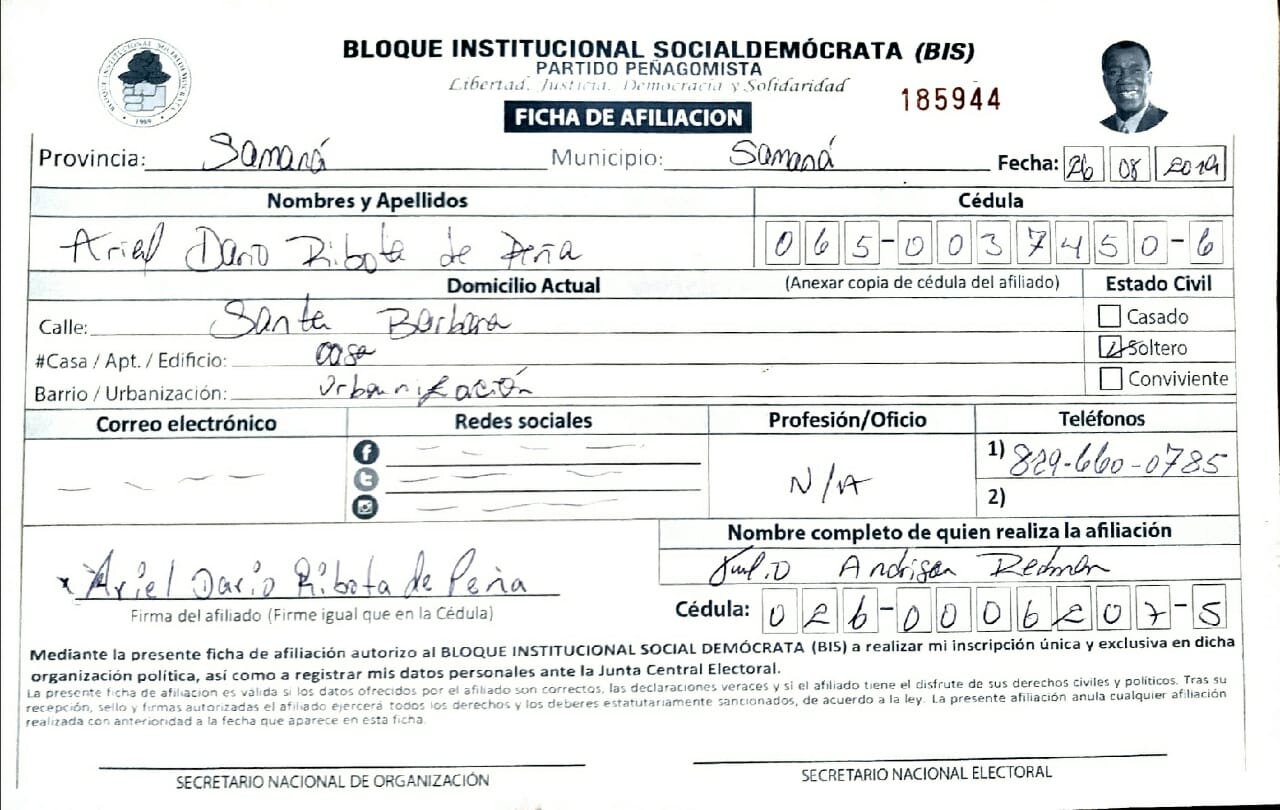 BLOQUE INSTITUCIONAL SOCIALDEMÓCRATA (BIS)
PARTIDO PEÑAGOMISTA
Libertad, Justicia, Democracia y Solidaridad
185944
FICHA DE AFILIACION
Provincia: Samaná Municipio: Samaná Fecha: 26 08 2019
Nombres y Apellidos Cédula
Ariel Dario Ribota de Peña 065-0037450-6
Domicilio Actual (Anexar copia de cédula del afiliado) Estado Civil
Calle: Santa Barbara Casado
#Casa / Apt. / Edificio: casa Soltero
Barrio / Urbanización: Urbanización Conviviente
Correo electrónico Redes sociales Profesión/Oficio Teléfonos
N/A 1) 829-660-0785
2)
Nombre completo de quien realiza la afiliación
Julio Andrison Redman
x Ariel Dario Ribota de Peña
Firma del afiliado (Firme igual que en la Cédula) Cédula: 026-0006207-5
Mediante la presente ficha de afiliación autorizo al BLOQUE INSTITUCIONAL SOCIAL DEMÓCRATA (BIS) a realizar mi inscripción única y exclusiva en dicha
organización política, así como a registrar mis datos personales ante la Junta Central Electoral.
La presente ficha de afiliación es valida si los datos ofrecidos por el afiliado son correctos, las declaraciones veraces y si el afiliado tiene el disfrute de sus derechos civiles y políticos. Tras su
recepción, sello y firmas autorizadas el afiliado ejercerá todos los derechos y los deberes estatutariamente sancionados, de acuerdo a la ley. La presente afiliación anula cualquier afiliación
realizada con anterioridad a la fecha que aparece en esta ficha.
SECRETARIO NACIONAL DE ORGANIZACIÓN SECRETARIO NACIONAL ELECTORAL